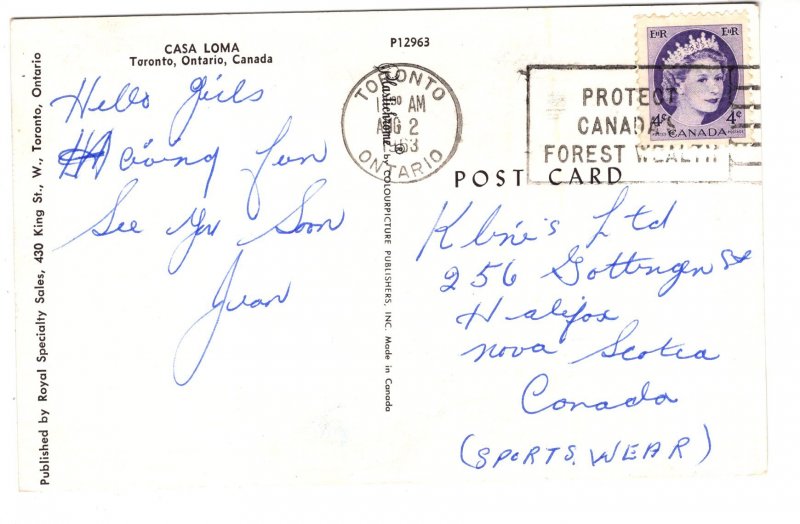 CASA LOMA
Toronto, Ontario, Canada
P12963
Hello Girls
Having fun
See You Soon
Published by Royal Specialty Sales, 430 King St., W., Toronto, Ontario
Plastichrome ® by COLOURPICTURE PUBLISHERS, INC. Made in Canada
TORONTO
AM
AUG 2
1963
ONTARIO
PROTECT
CANADA'S
FOREST WEALTH
EIIR EIIR
4¢ 4¢
POSTES CANADA POSTAGE
POST CARD
Kline's Ltd
256 Gottingen St
Halifax
Nova Scotia
Canada
(SPORTS. WEAR)